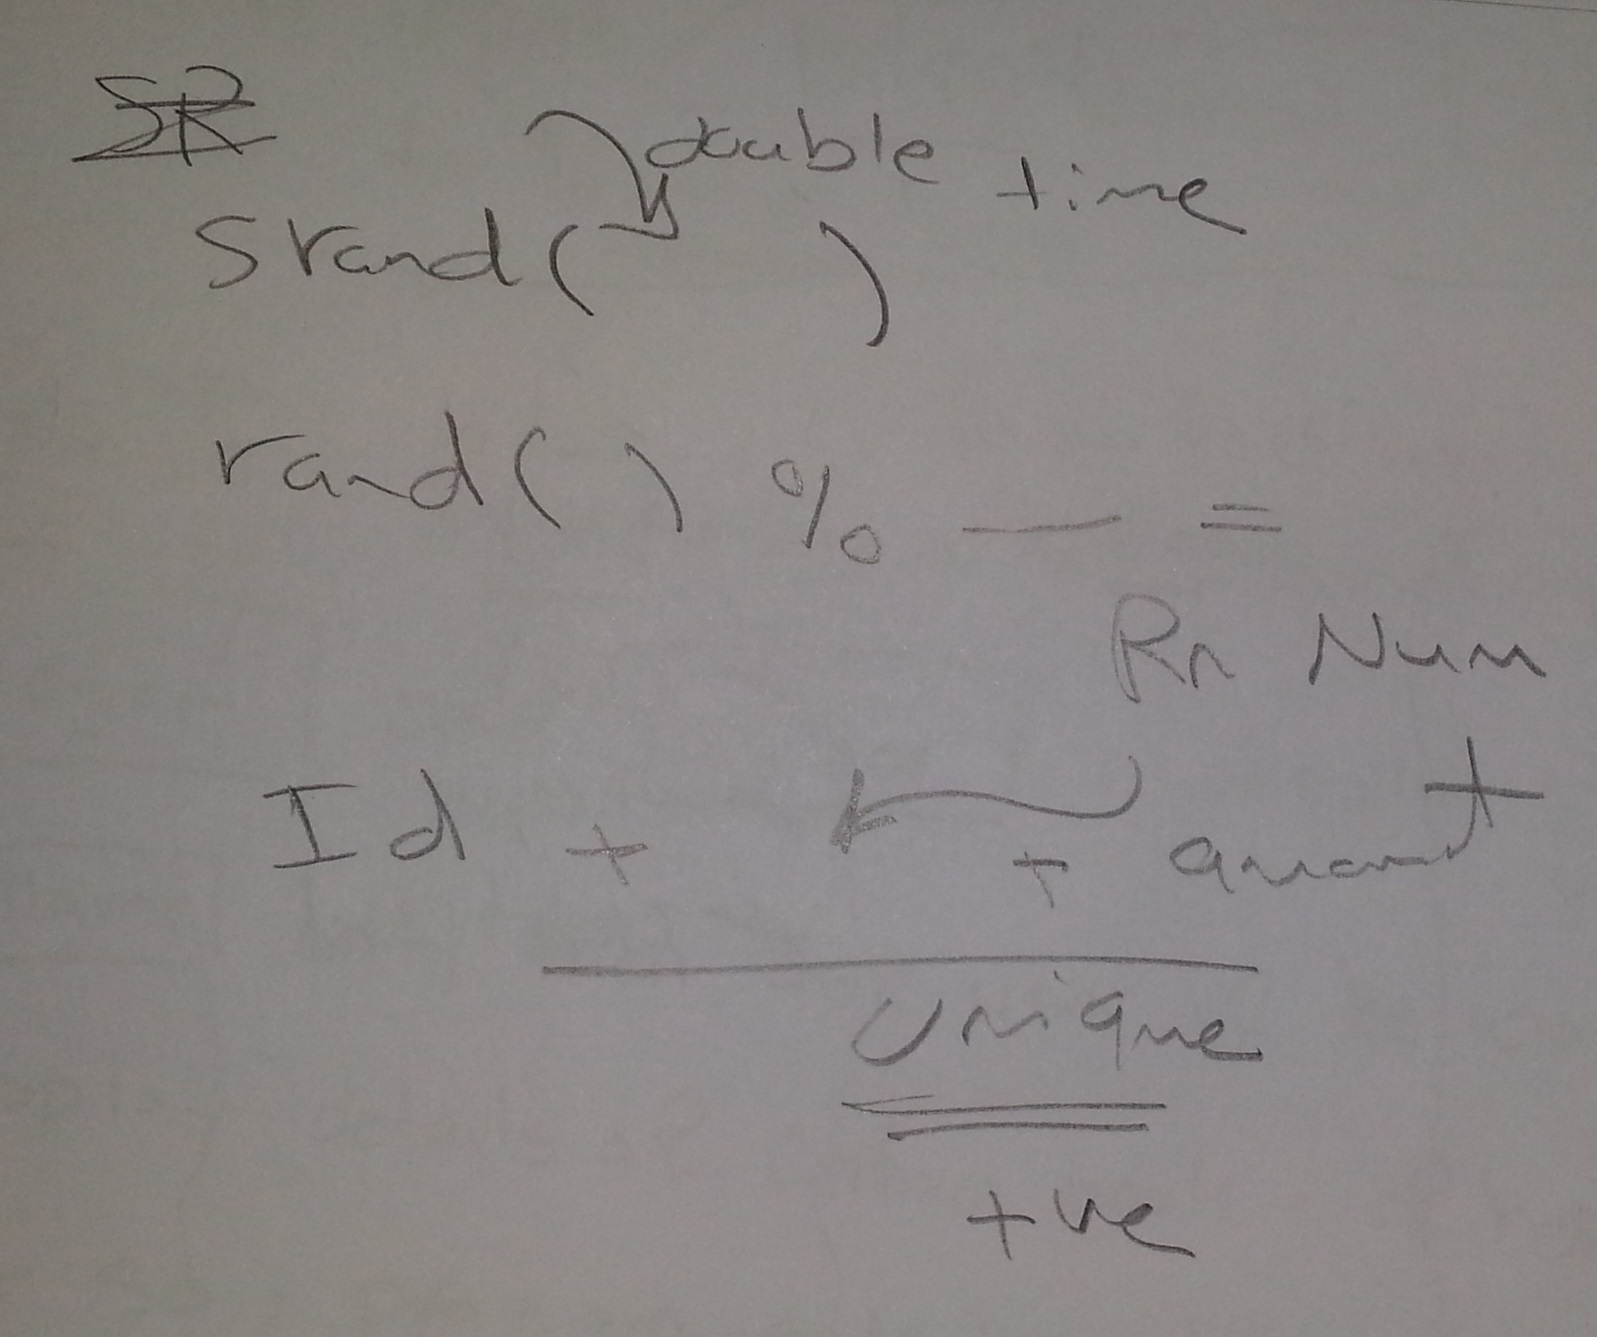 SR
double time
Srand( )
rand( ) % — =
Rn Num
Id + + amount
Unique
+ve